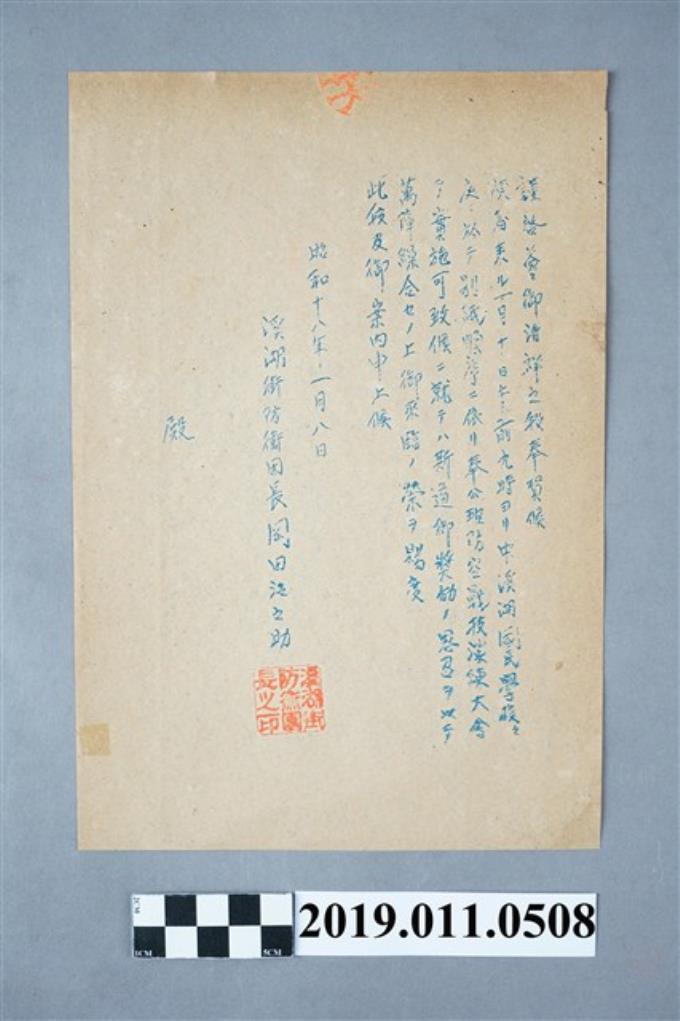 謹啓益御清祥之段奉賀候
陳者来ル一月十日午前九時ヨリ中溪湖國民學校々
庭ニ於テ別紙順序ニ依リ奉公班防空競技演練大會
ヲ實施可致候ニ就テハ斯道御奬励ノ思召ヲ以テ
萬障繰合セノ上御来臨ノ榮ヲ賜度
此段及御案内申上候
昭和十八年一月八日
溪湖街防衛団長 岡田治之助
溪湖街防衛團長之印
殿
2CM
1CM
5CM
2019.011.0508